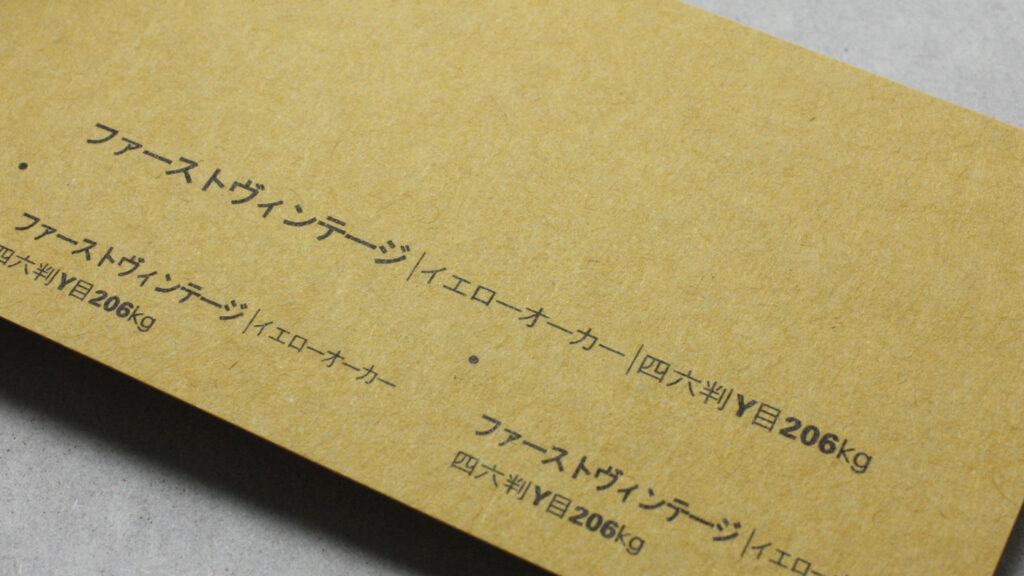 ファーストヴィンテージ|イエローオーカー|四六判Y目206kg
ファーストヴィンテージ|イエローオーカー
四六判Y目206kg
ファーストヴィンテージ|イエローオーカー
四六判Y目206kg